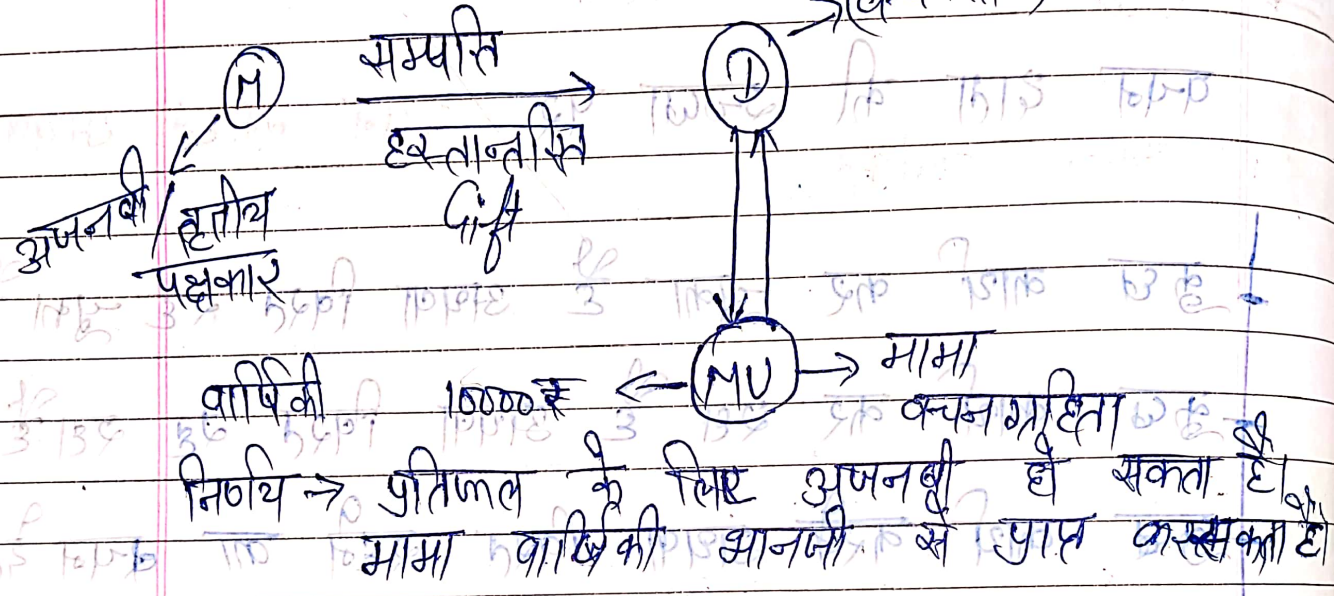 M सम्पत्ति D
हस्तान्तरित
अजनबी / तृतीय Gift
पक्षकार
MU → मामा
वार्षिकी 10000₹ ← वचनग्रहिता
निर्णय → प्रतिफल के लिए अजनबी हो सकता है।
मामा वार्षिकी भानजी से प्राप्त कर सकता है।